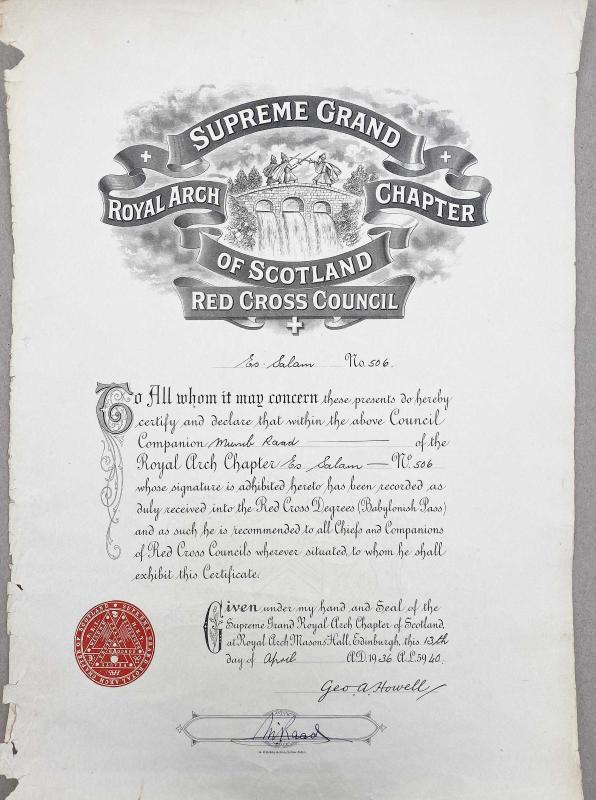 SUPREME GRAND
ROYAL ARCH CHAPTER
OF SCOTLAND
RED CROSS COUNCIL
Es Salam No. 506.
To All whom it may concern these presents do hereby
certify and declare that within the above Council
Companion Munib Raad of the
Royal Arch Chapter Es Salam — No. 506
whose signature is adhibited hereto has been recorded as
duly received into the Red Cross Degrees (Babylonish Pass)
and as such he is recommended to all Chiefs and Companions
of Red Cross Councils wherever situated, to whom he shall
exhibit this Certificate.
Given under my hand and Seal of the
Supreme Grand Royal Arch Chapter of Scotland,
at Royal Arch Masons Hall, Edinburgh, this 13th
day of April A.D. 1936 A.L. 5940.
Geo. A. Howell
M. Raad
SUPREME ROYAL ARCH CHAPTER OF SCOTLAND